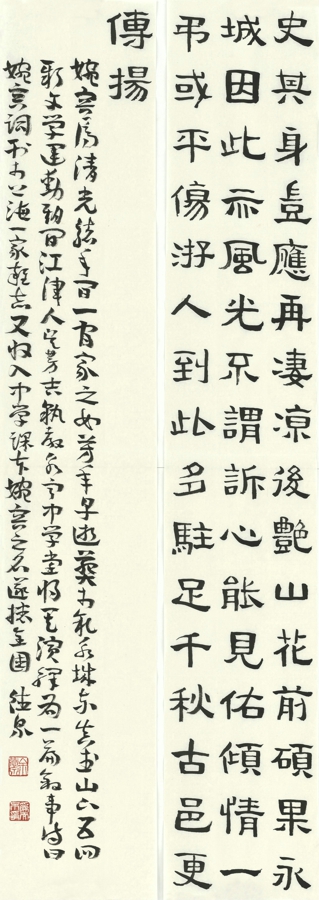 史其身豈應再淒涼後艷山花前碩果永
城因此亦風光不謂訴心能見佑傾情一
弔或平傷游人到此多駐足千秋古邑更
傳揚
婉容為清光緒年間一官家之女芳年早逝葬於叙永城東真武山下五四
新文學運動期間江津人吳芳吉執教永寧中學堂將其演釋為一篇叙事詩曰
婉容詞刊於上海一家雜志又收入中學課本婉容之名遂播全國